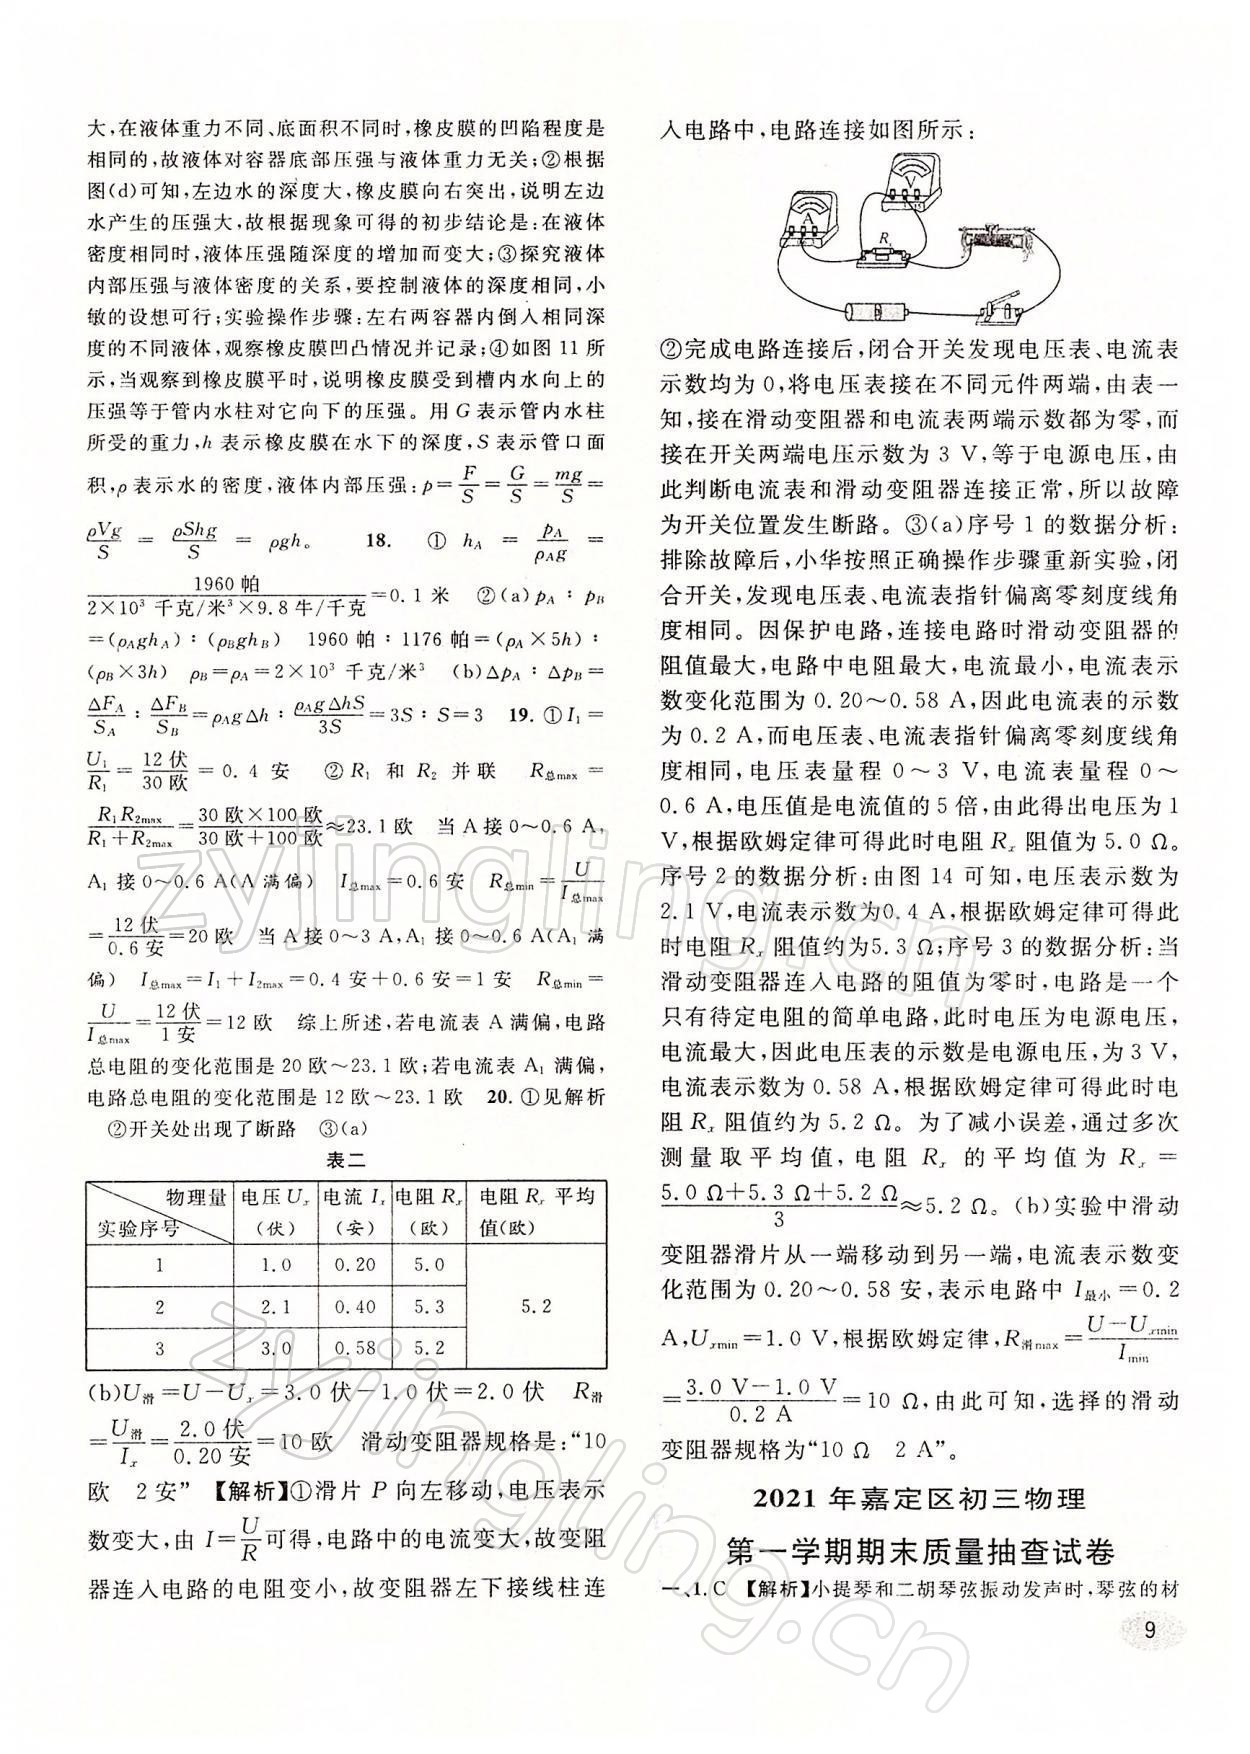 大,在液体重力不同、底面积不同时,橡皮膜的凹陷程度是
相同的,故液体对容器底部压强与液体重力无关;②根据
图(d)可知,左边水的深度大,橡皮膜向右突出,说明左边
水产生的压强大,故根据现象可得的初步结论是:在液体
密度相同时,液体压强随深度的增加而变大;③探究液体
内部压强与液体密度的关系,要控制液体的深度相同,小
敏的设想可行;实验操作步骤:左右两容器内倒入相同深
度的不同液体,观察橡皮膜凹凸情况并记录;④如图 11 所
示,当观察到橡皮膜平时,说明橡皮膜受到槽内水向上的
压强等于管内水柱对它向下的压强。用 G 表示管内水柱
所受的重力,h 表示橡皮膜在水下的深度,S 表示管口面
积,ρ 表示水的密度,液体内部压强:p=F/S=G/S=mg/S=
ρVg/S = ρShg/S = ρgh。 18. ① h_A = p_A/ρ_Ag =
1960 帕/(2×10³ 千克/米³×9.8 牛/千克)=0.1 米 ②(a)p_A∶p_B
=(ρ_Agh_A)∶(ρ_Bgh_B) 1960 帕∶1176 帕=(ρ_A×5h)∶
(ρ_B×3h) ρ_B=ρ_A=2×10³ 千克/米³ (b)Δp_A∶Δp_B=
ΔF_A/S_A∶ΔF_B/S_B=ρ_AgΔh∶ρ_AgΔhS/3S=3S∶S=3 19. ①I₁=
U₁/R₁=12 伏/30 欧=0.4 安 ②R₁ 和 R₂ 并联 R总max=
R₁R₂max/(R₁+R₂max)=30 欧×100 欧/(30 欧+100 欧)≈23.1 欧 当 A 接 0～0.6 A,
A₁ 接 0～0.6 A(A 满偏) I总max=0.6 安 R总min=U/I总max
=12 伏/0.6 安=20 欧 当 A 接 0～3 A,A₁ 接 0～0.6 A(A₁ 满
偏) I总max=I₁+I₂max=0.4 安+0.6 安=1 安 R总min=
U/I总max=12 伏/1 安=12 欧 综上所述,若电流表 A 满偏,电路
总电阻的变化范围是 20 欧～23.1 欧;若电流表 A₁ 满偏,
电路总电阻的变化范围是 12 欧～23.1 欧 20. ①见解析
②开关处出现了断路 ③(a)
表二
物理量 实验序号 电压 Uₓ(伏) 电流 Iₓ(安) 电阻 Rₓ(欧) 电阻 Rₓ 平均值(欧)
1 1.0 0.20 5.0
2 2.1 0.40 5.3 5.2
3 3.0 0.58 5.2
(b)U滑=U－Uₓ=3.0 伏－1.0 伏=2.0 伏 R滑
=U滑/Iₓ=2.0 伏/0.20 安=10 欧 滑动变阻器规格是:“10
欧 2 安” 【解析】①滑片 P 向左移动,电压表示
数变大,由 I=U/R可得,电路中的电流变大,故变阻
器连入电路的电阻变小,故变阻器左下接线柱连
入电路中,电路连接如图所示:
A
V
Rₓ
②完成电路连接后,闭合开关发现电压表、电流表
示数均为 0,将电压表接在不同元件两端,由表一
知,接在滑动变阻器和电流表两端示数都为零,而
接在开关两端电压示数为 3 V,等于电源电压,由
此判断电流表和滑动变阻器连接正常,所以故障
为开关位置发生断路。③(a)序号 1 的数据分析:
排除故障后,小华按照正确操作步骤重新实验,闭
合开关,发现电压表、电流表指针偏离零刻度线角
度相同。因保护电路,连接电路时滑动变阻器的
阻值最大,电路中电阻最大,电流最小,电流表示
数变化范围为 0.20～0.58 A,因此电流表的示数
为 0.2 A,而电压表、电流表指针偏离零刻度线角
度相同,电压表量程 0～3 V,电流表量程 0～
0.6 A,电压值是电流值的 5 倍,由此得出电压为 1
V,根据欧姆定律可得此时电阻 Rₓ 阻值为 5.0 Ω。
序号 2 的数据分析:由图 14 可知,电压表示数为
2.1 V,电流表示数为0.4 A,根据欧姆定律可得此
时电阻 Rₓ 阻值约为5.3 Ω;序号 3 的数据分析:当
滑动变阻器连入电路的阻值为零时,电路是一个
只有待定电阻的简单电路,此时电压为电源电压,
电流最大,因此电压表的示数是电源电压,为 3 V,
电流表示数为 0.58 A,根据欧姆定律可得此时电
阻 Rₓ 阻值约为 5.2 Ω。为了减小误差,通过多次
测量取平均值,电阻 Rₓ 的平均值为 Rₓ =
(5.0 Ω+5.3 Ω+5.2 Ω)/3≈5.2 Ω。(b)实验中滑动
变阻器滑片从一端移动到另一端,电流表示数变
化范围为 0.20～0.58 安,表示电路中 I最小=0.2
A,Uₓmin=1.0 V,根据欧姆定律,R滑max=(U－Uₓmin)/Imin
=(3.0 V－1.0 V)/0.2 A=10 Ω,由此可知,选择的滑动
变阻器规格为“10 Ω 2 A”。
2021 年嘉定区初三物理
第一学期期末质量抽查试卷
一、1.C 【解析】小提琴和二胡琴弦振动发声时,琴弦的材
9
zyjingling.cn
zyjingling.cn